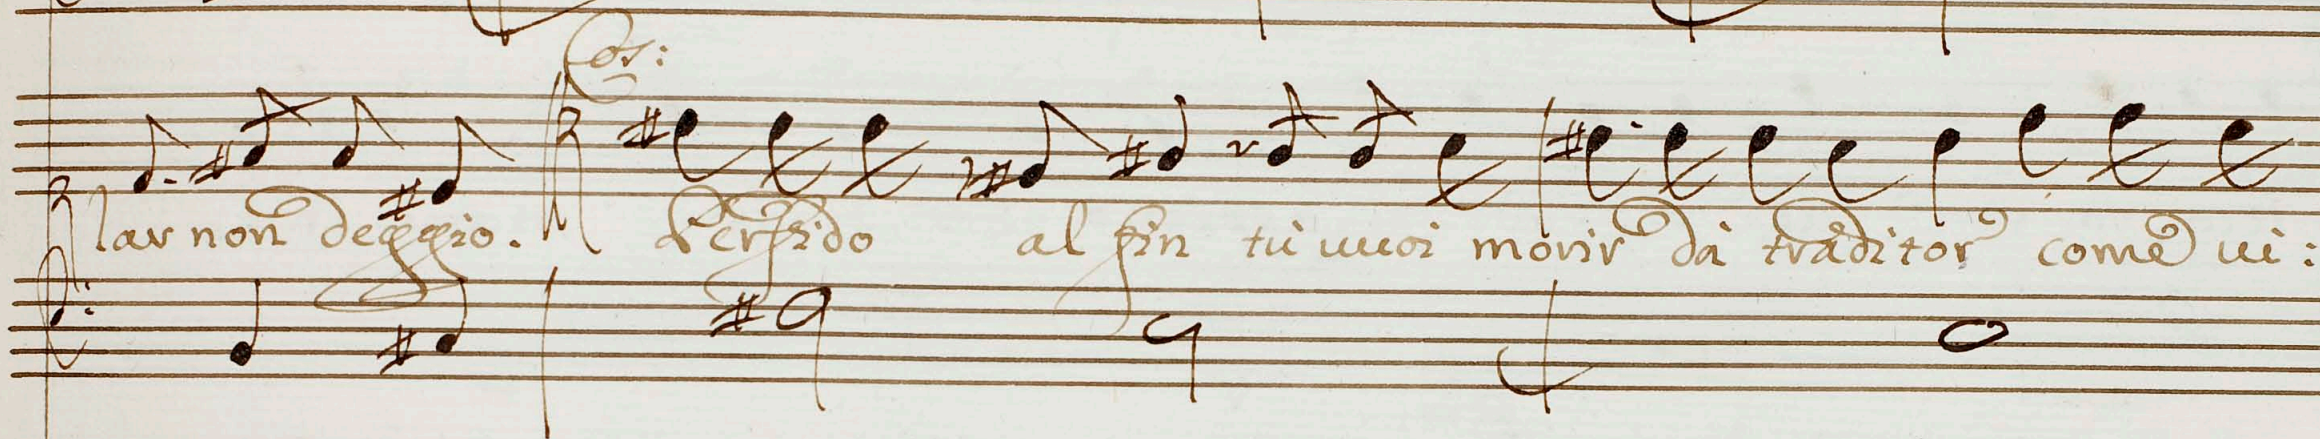 Cos:
lar non deggio. Perfido al fin tù vuoi morir dà traditor come vi: